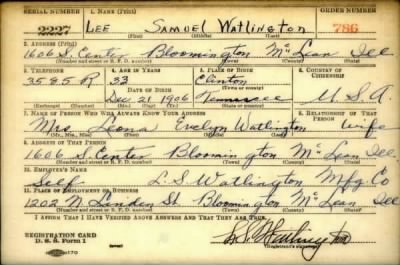 SERIAL NUMBER 1. NAME (Print) ORDER NUMBER
2227 LEE SAMUEL WATLINGTON 786
(First) (Middle) (Last)
2. ADDRESS (Print)
1606 S. Center Bloomington McLean Ill
(Number and street or R. F. D. number) (Town) (County) (State)
3. TELEPHONE 4. AGE IN YEARS 5. PLACE OF BIRTH 6. COUNTRY OF CITIZENSHIP
3585 R 33 Clinton
DATE OF BIRTH (Town or county)
Dec 21 1906 Tennessee U.S.A.
(Exchange) (Number) (Mo.) (Day) (Yr.) (State or country)
7. NAME OF PERSON WHO WILL ALWAYS KNOW YOUR ADDRESS 8. RELATIONSHIP OF THAT PERSON
Mrs Leona Evelyn Watlington Wife
(Mr., Mrs., Miss) (First) (Middle) (Last)
9. ADDRESS OF THAT PERSON
1606 S Center Bloomington McLean Ill.
(Number and street or R. F. D. number) (Town) (County) (State)
10. EMPLOYER'S NAME
Self L.S. Watlington Mfg. Co
11. PLACE OF EMPLOYMENT OR BUSINESS
1202 N. Linden St. Bloomington McLean Ill
(Number and street or R. F. D. number) (Town) (County) (State)
I AFFIRM THAT I HAVE VERIFIED ABOVE ANSWERS AND THAT THEY ARE TRUE.
REGISTRATION CARD
D. S. S. Form 1 L.S. Watlington
(Registrant's signature)